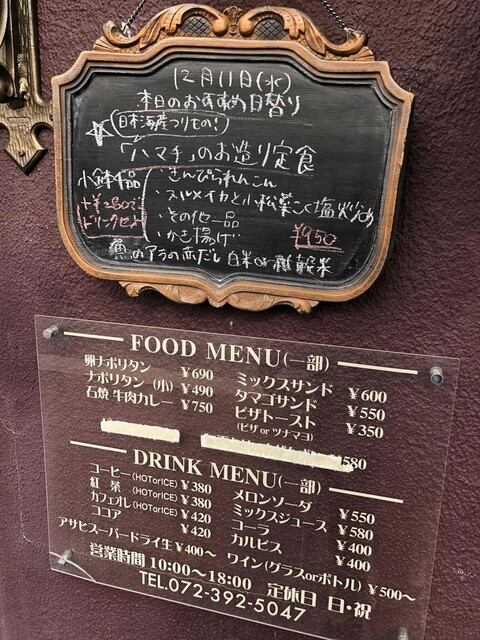 12月11日(水)
本日のおすすめ日替り
☆日本海産つりもの!
「ハマチ」のお造り定食
小鉢4品
・きんぴられんこん
・スルメイカと小松菜にんにく塩炒め
・その他一品
・かき揚げ
+¥250で
ドリンクセット
¥950
魚のアラの赤だし 白米or雑穀米
FOOD MENU(一部)
卵ナポリタン ¥690
ナポリタン(小) ¥490
石焼 牛肉カレー ¥750
ミックスサンド ¥600
タマゴサンド ¥550
ピザトースト ¥350
(ピザ or ツナマヨ)
¥580
DRINK MENU(一部)
コーヒー(HOTorICE) ¥380
紅茶(HOTorICE) ¥380
カフェオレ(HOTorICE) ¥420
ココア ¥420
アサヒスーパードライ生 ¥400〜
メロンソーダ ¥550
ミックスジュース ¥580
コーラ ¥400
カルピス ¥400
ワイン(グラスorボトル) ¥500〜
営業時間 10:00〜18:00 定休日 日・祝
TEL.072-392-5047